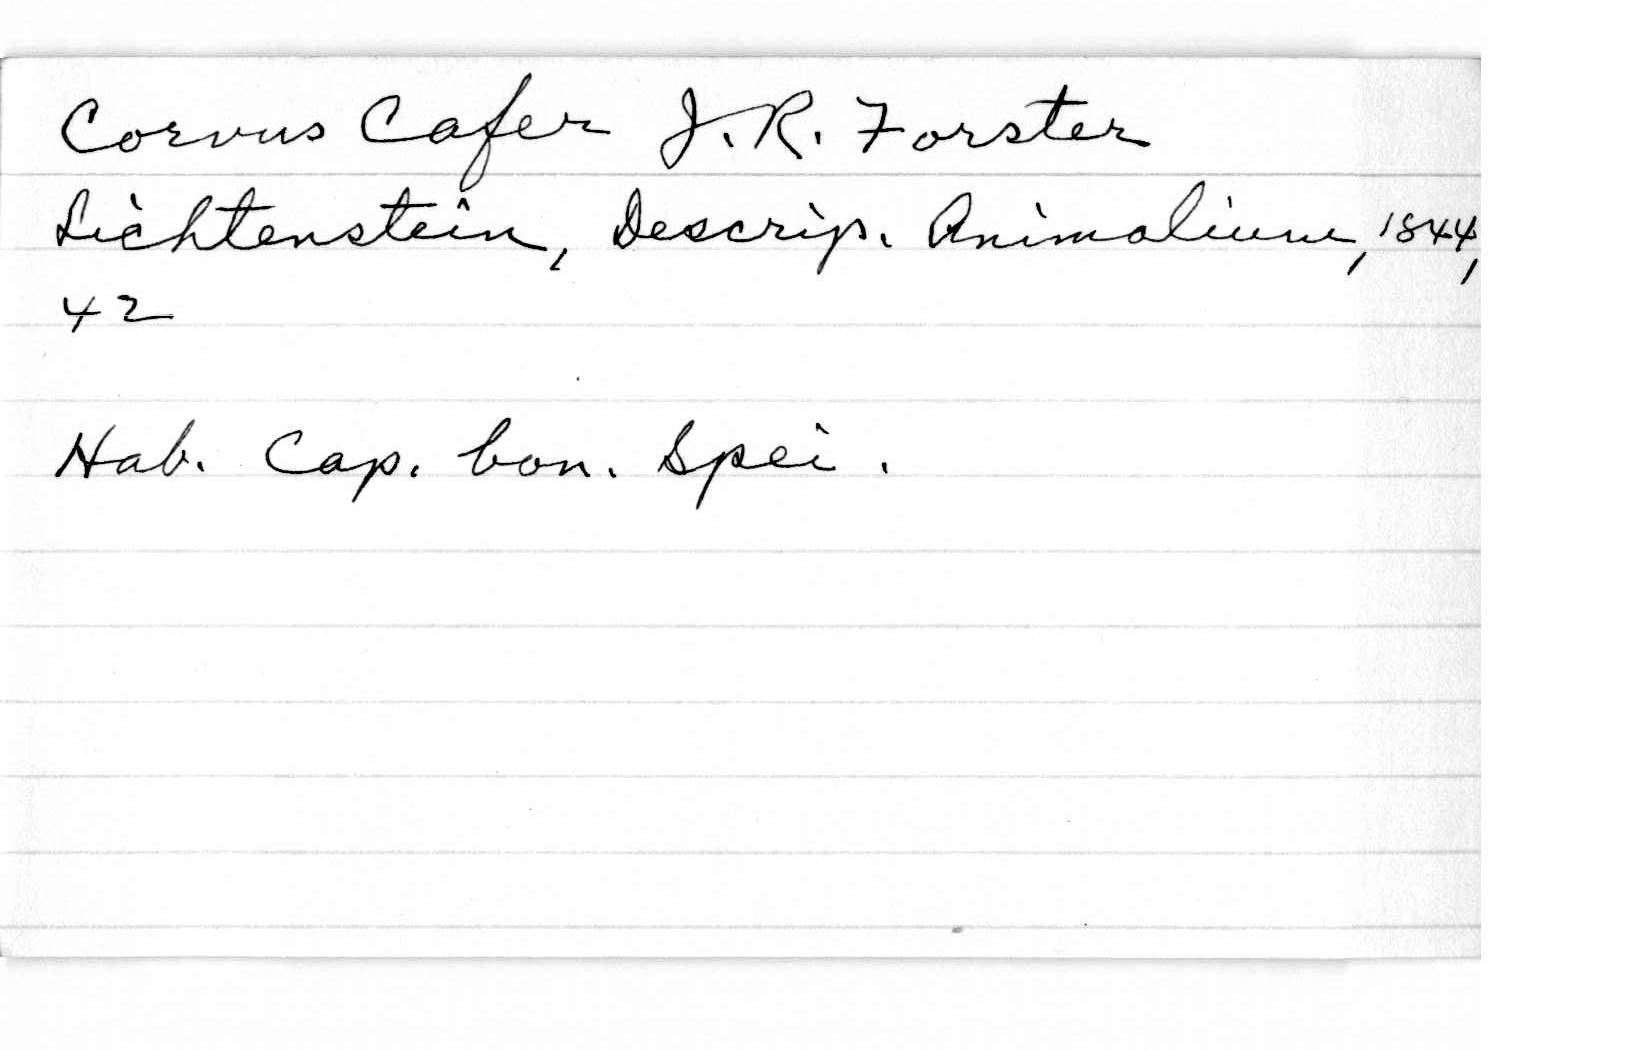 Corvus Cafer J. R. Forster
Lichtenstein, Descrip. Animalium, 1844,
42
Hab. Cap. bon. Spei.